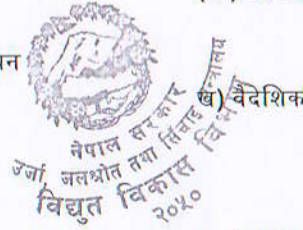 न
ख) वैदेशिक
नेपाल सरकार
उर्जा, जलश्रोत तथा सिंचाइ मन्त्रालय
विद्युत विकास विभाग
२०५०